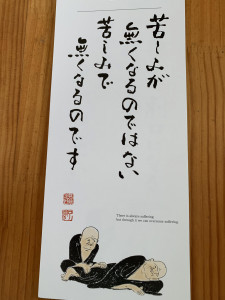 苦しみが
無くなるのではない
苦しみで
無くなるのです
There is always suffering,
but through it we can overcome suffering.